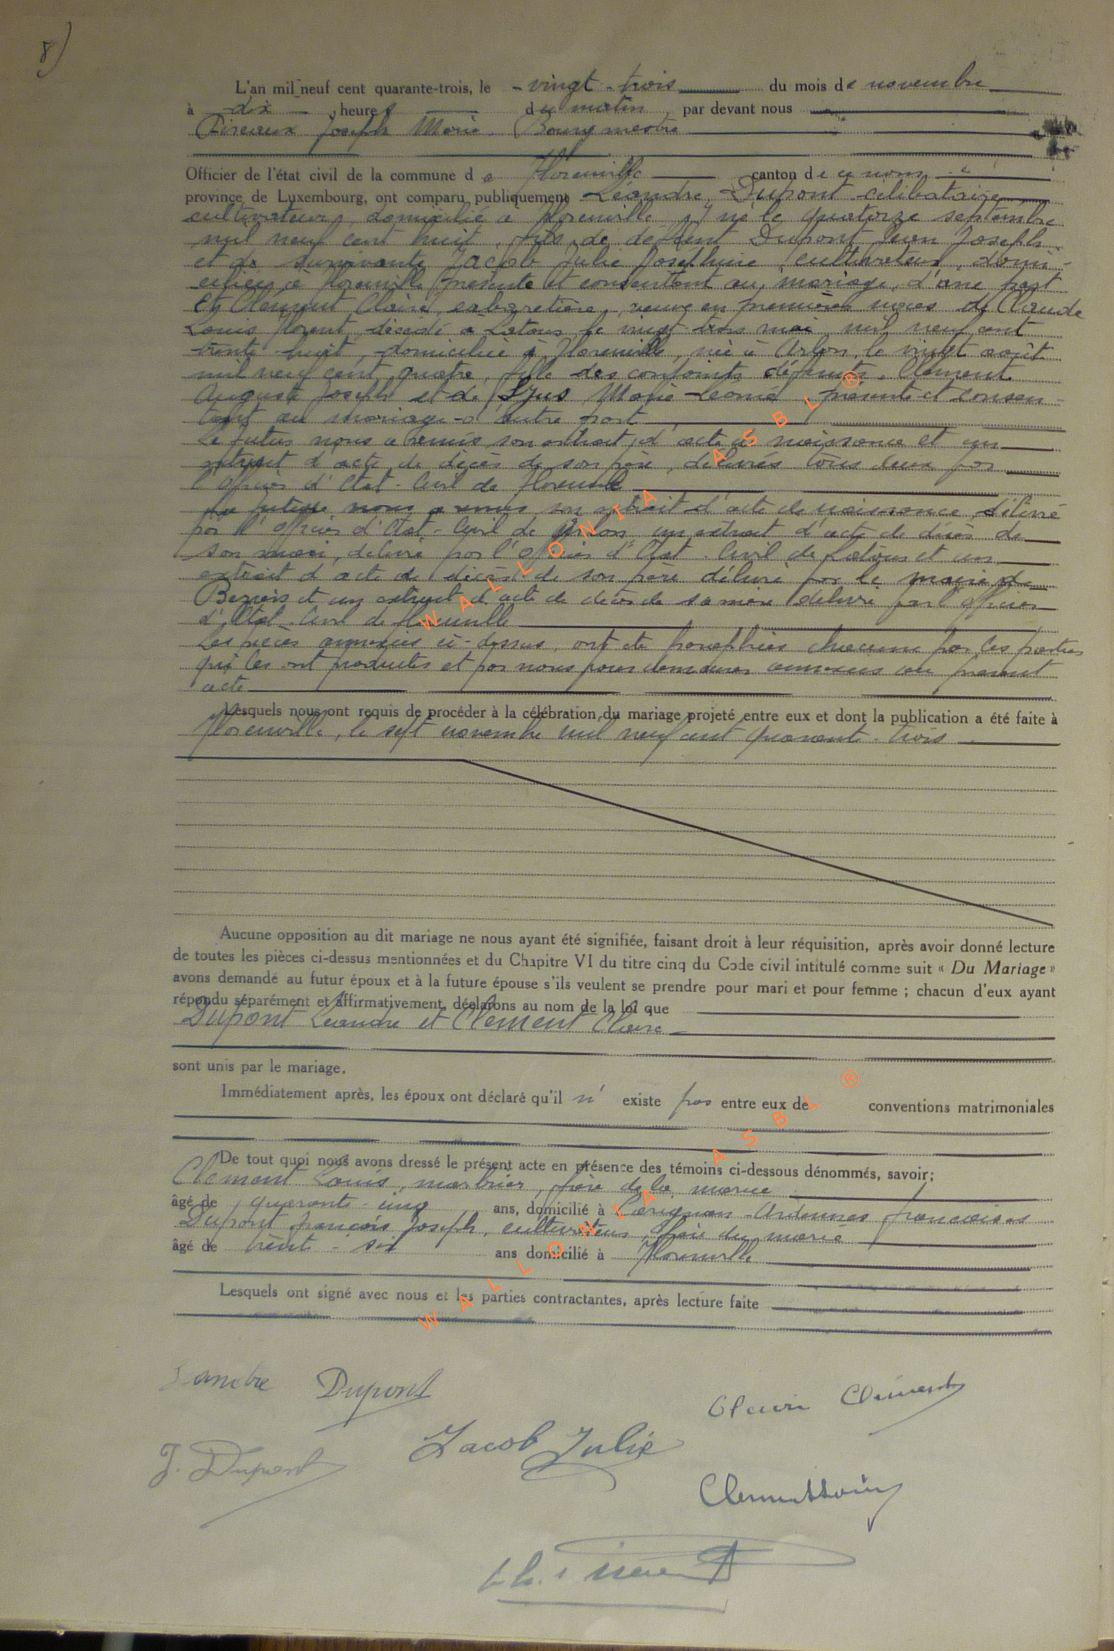 8)
L'an mil neuf cent quarante-trois, le vingt-trois du mois de novembre
à dix heures du matin par devant nous
Pireaux Joseph Marie Bourgmestre
Officier de l'état civil de la commune de Florenville canton de ce nom
province de Luxembourg, ont comparu publiquement Léandre Dupont célibataire
cultivateur, domicilié à Florenville, y né le quatorze septembre
mil neuf cent huit, fils de défunt Dupont Jean Joseph
et de survivante Jacob Julie Josephine cultivateur, domi-
ciliée à Florenville, présente et consentant au mariage, d'une part
Et Clement Claire, cabaretière, veuve en premières noces de Claude
Louis Florent, décédé à Latour le vingt trois mai mil neuf cent
trente huit, domiciliée à Florenville, née à Arlon, le vingt août
mil neuf cent quatre, fille des conjoints défunts, Clément
Auguste Joseph et de Marie-Léonie, présente et consen-
tant au mariage d'autre part
Le futur nous a remis son extrait d'acte de naissance et un
extrait d'acte de décès de son père, délivrés tous deux par
l'officier d'Etat-Civil de Florenville
La future nous a remis son extrait d'acte de naissance délivré
par l'officier d'Etat-Civil de Arlon, un extrait d'acte de décès de
son mari, délivré par l'officier d'Etat-Civil de Latour et un
extrait d'acte de décès de son père délivré par le maire de
et un extrait d'acte de décès de sa mère délivré par l'officier
d'Etat-Civil de Florenville
Les pièces annexées ci-dessus, ont été paraphées chacune par les parties
qui les ont produites et par nous pour demeurer annexées au présent
acte
Lesquels nous ont requis de procéder à la célébration du mariage projeté entre eux et dont la publication a été faite à
Florenville, le sept novembre mil neuf cent quarante-trois
Aucune opposition au dit mariage ne nous ayant été signifiée, faisant droit à leur réquisition, après avoir donné lecture
de toutes les pièces ci-dessus mentionnées et du Chapitre VI du titre cinq du Code civil intitulé comme suit « Du Mariage »
avons demandé au futur époux et à la future épouse s'ils veulent se prendre pour mari et pour femme ; chacun d'eux ayant
répondu séparément et affirmativement, déclarons au nom de la loi que
Dupont Léandre et Clément Claire
sont unis par le mariage.
Immédiatement après, les époux ont déclaré qu'il n' existe pas entre eux de conventions matrimoniales
De tout quoi nous avons dressé le présent acte en présence des témoins ci-dessous dénommés, savoir;
Clément Louis, marbrier, frère de la mariée
âgé de quarante-cinq ans, domicilié à Carignan-Ardennes françaises
Dupont françois Joseph, cultivateur, frère du marié
âgé de trente-six ans domicilié à Florenville
Lesquels ont signé avec nous et les parties contractantes, après lecture faite
Léandre Dupont
Claire Clément
Jacob Julie
J. Dupont
Clement Louis
WALLONIA ASBL ®
WALLONIA ASBL ®